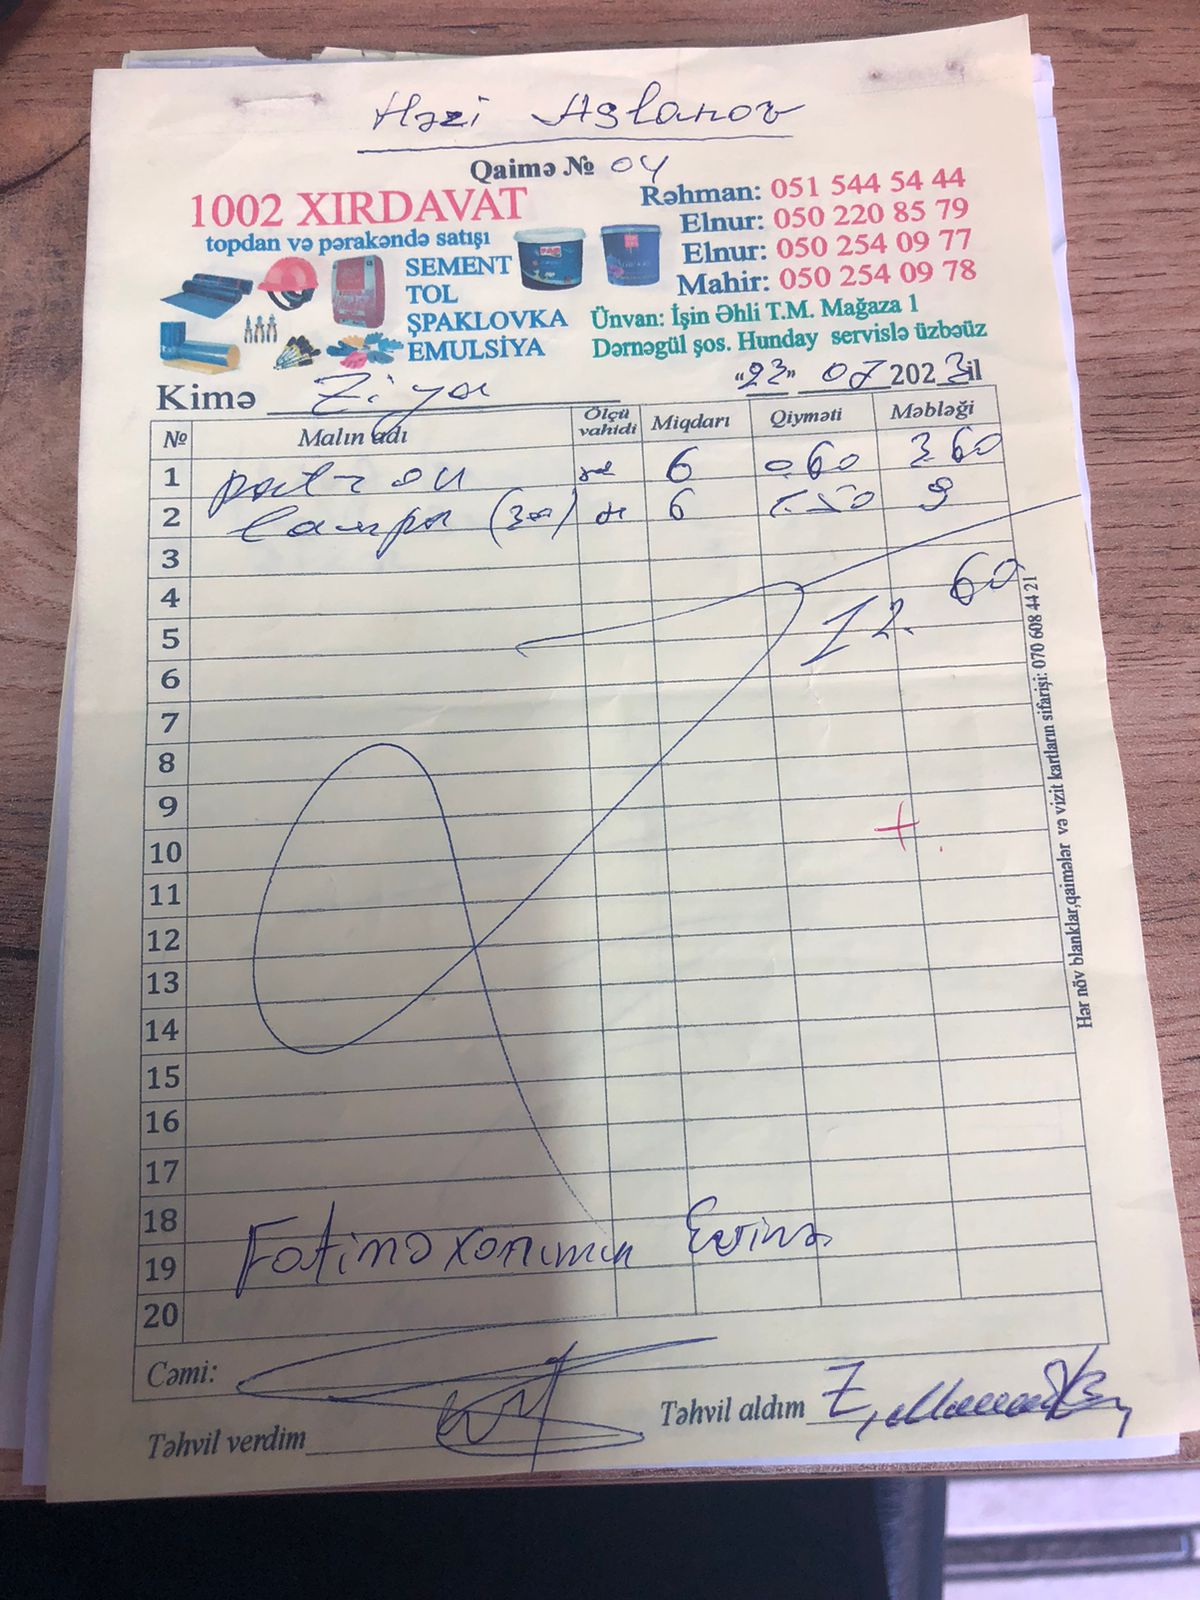 Həzi Aslanov
Qaimə № 04
1002 XIRDAVAT
topdan və pərakəndə satışı
SEMENT
TOL
ŞPAKLOVKA
EMULSİYA
Rəhman: 051 544 54 44
Elnur: 050 220 85 79
Elnur: 050 254 09 77
Mahir: 050 254 09 78
Ünvan: İşin Əhli T.M. Mağaza 1
Dərnəgül şos. Hunday servislə üzbəüz
Kimə Ziya "23" 07 2023 il
№ Malın adı Ölçü vahidi Miqdarı Qiyməti Məbləği
1 patron 6 0.60 3.60
2 lampa 6 1.50 9
3
4 12.60
5
6
7
8
9
10
11
12
13
14
15
16
17
18
19 Fatimə xanımın Evinə
20
Cəmi:
Təhvil verdim Təhvil aldım
Hər növ blanklar,qaimələr və vizit kartların sifarişi: 070 608 44 21